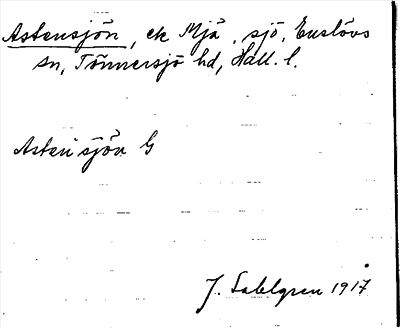 Astensjön, ek Mjä, sjö, Enslövs
sn, Tönnersjö hd, Hall. l.
Astensjön G
J. Sahlgren 1917